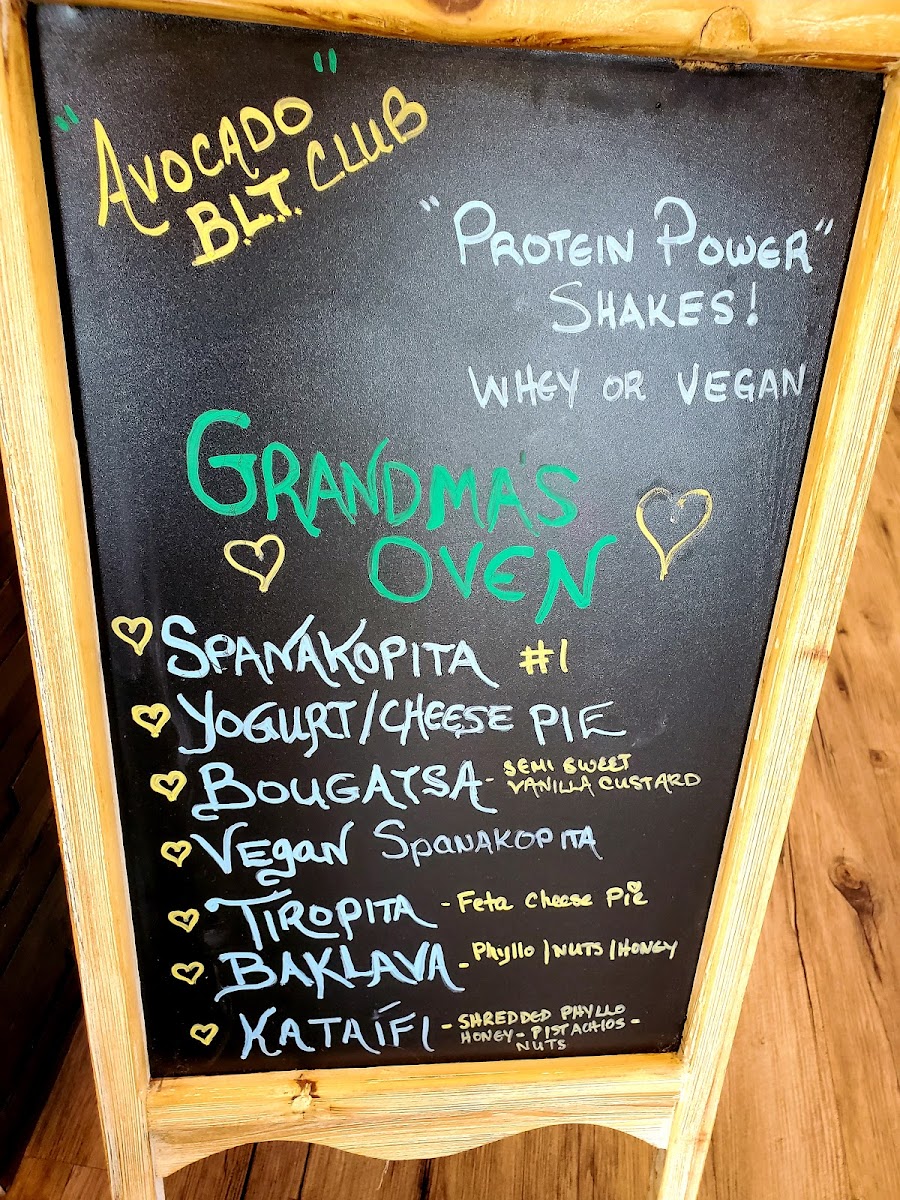 "AVOCADO"
B.L.T. CLUB
"PROTEIN POWER"
SHAKES!
WHEY OR VEGAN
GRANDMA'S
OVEN
SPANAKOPITA #1
YOGURT/CHEESE PIE
BOUGATSA - SEMI SWEET
VANILLA CUSTARD
Vegan SpanakopitA
TIROPITA - Feta cheese Pie
BAKLAVA - Phyllo / NUTS / HONEY
KATAÍFI - SHREDDED PHYLLO
HONEY - PISTACHIOS -
NUTS